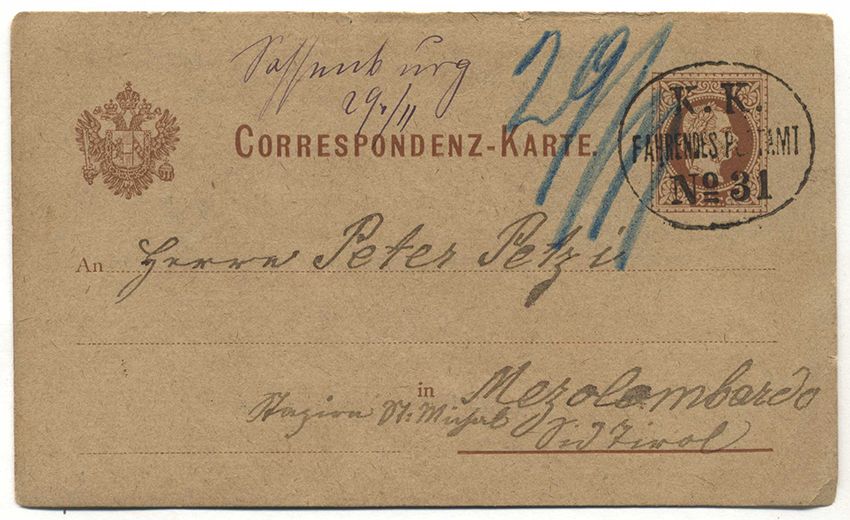 Sachsenburg
29./11
29/11
CORRESPONDENZ-KARTE.
K. K.
FAHRENDES POSTAMT
No 31
An Herrn Peter Petzi
in Mezolombardo
Stazion St: Michel
Sid Tirol